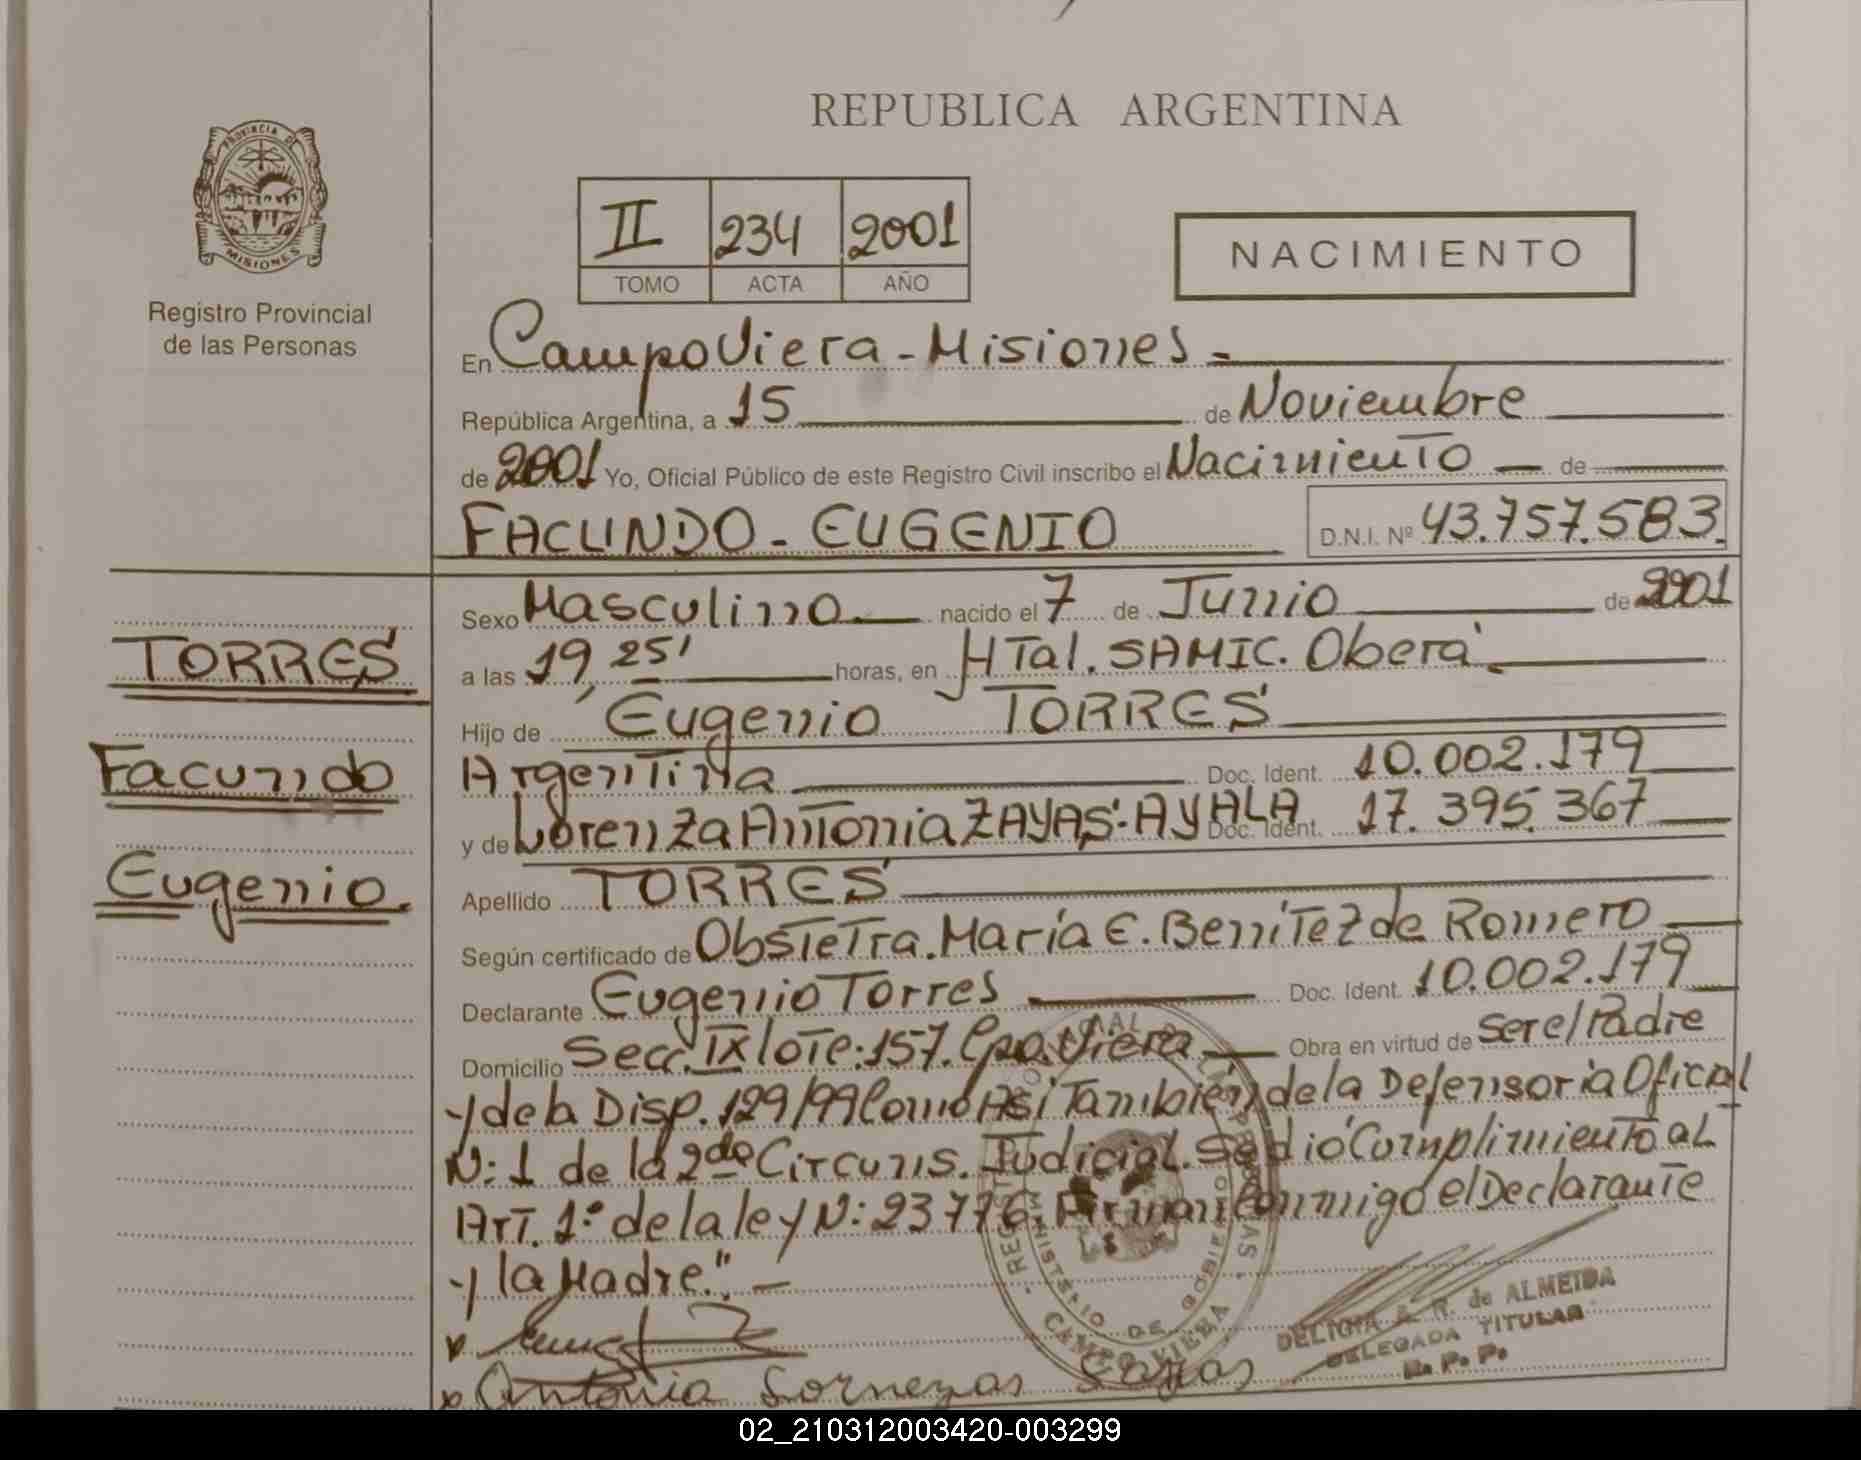 REPUBLICA ARGENTINA
PROVINCIA DE
MISIONES
Registro Provincial
de las Personas
II 234 2001
TOMO ACTA AÑO
NACIMIENTO
En Campo Viera - Misiones -
República Argentina, a 15 de Noviembre
de 2001 Yo, Oficial Público de este Registro Civil inscribo el Nacimiento de
FACUNDO - EUGENIO D.N.I. Nº 43.757.583.
TORRES
Facundo
Eugenio.
Sexo Masculino nacido el 7 de Junio de 2001
a las 19,25' horas, en HTal. SAMIC. Oberá
Hijo de Eugenio TORRES
Argentina Doc. Ident. 10.002.179
y de Lorenza Antonia ZAYAS - AYALA Doc. Ident. 17.395.367
Apellido TORRES
Según certificado de Obstetra. María E. Benítez de Romero
Declarante Eugenio Torres Doc. Ident. 10.002.179
Domicilio Secc. IX lote: 157. Cpo. Viera Obra en virtud de ser el Padre
y de la Disp. 129/99 Como Así También de la Defensoría Oficial
N: 1 de la 2da Circuns. Judicial. Se dió Cumplimiento al
Art. 1º de la ley N: 23776. Firman Conmigo el Declarante
y la Madre." -
Antonia
CAMPO VIERA
MINISTERIO DE GOBIERNO
DELICIA A. R. de ALMEIDA
DELEGADA TITULAR
R. P. P.
02_210312003420-003299